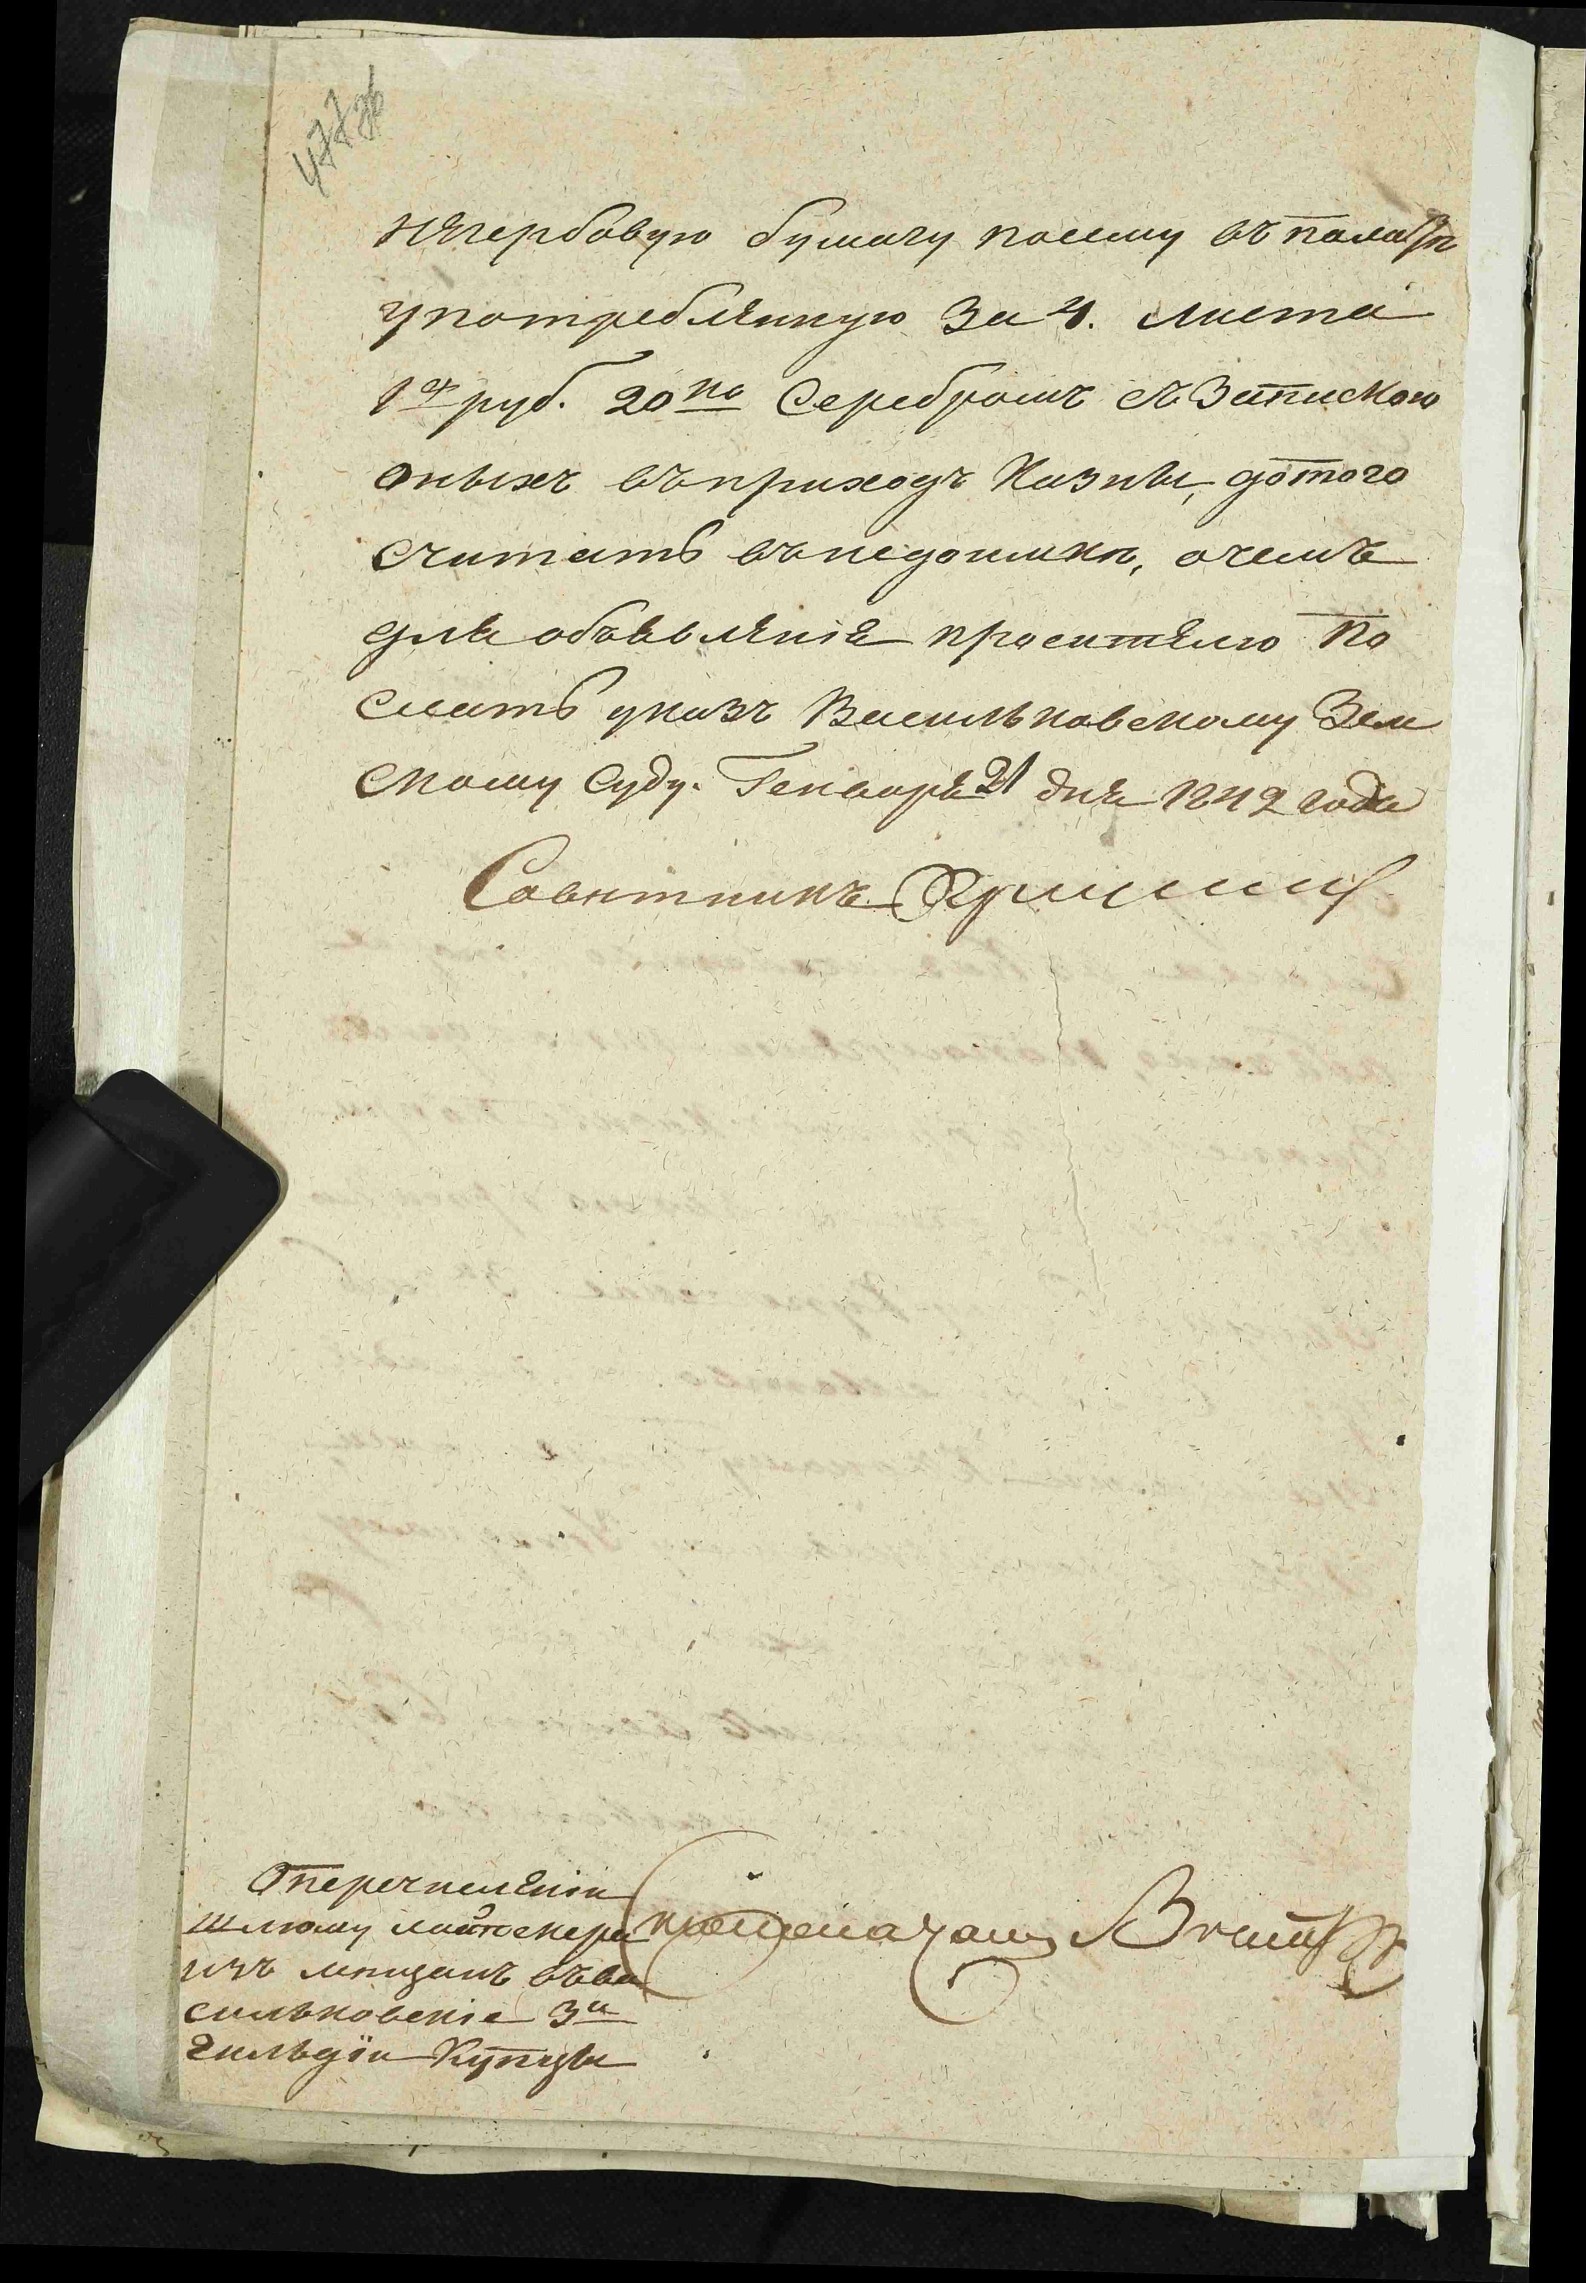 477об
негербовую бумагу посему въ палатѣ
употребленную за 4. листа
1н руб. 20ко серебромъ съ запискою
оныхъ въ приходъ казны, до того
считать въ недоимкѣ, о чемъ
для объявленія просителю по
слать указъ Васильковскому Зем
скому суду. Генваря 21 дня 1842 года
Совѣтникъ
О перечисленіи
Шлюму
изъ мѣщанъ въ Ва
сильковскіе 3й
гильдіи купцы